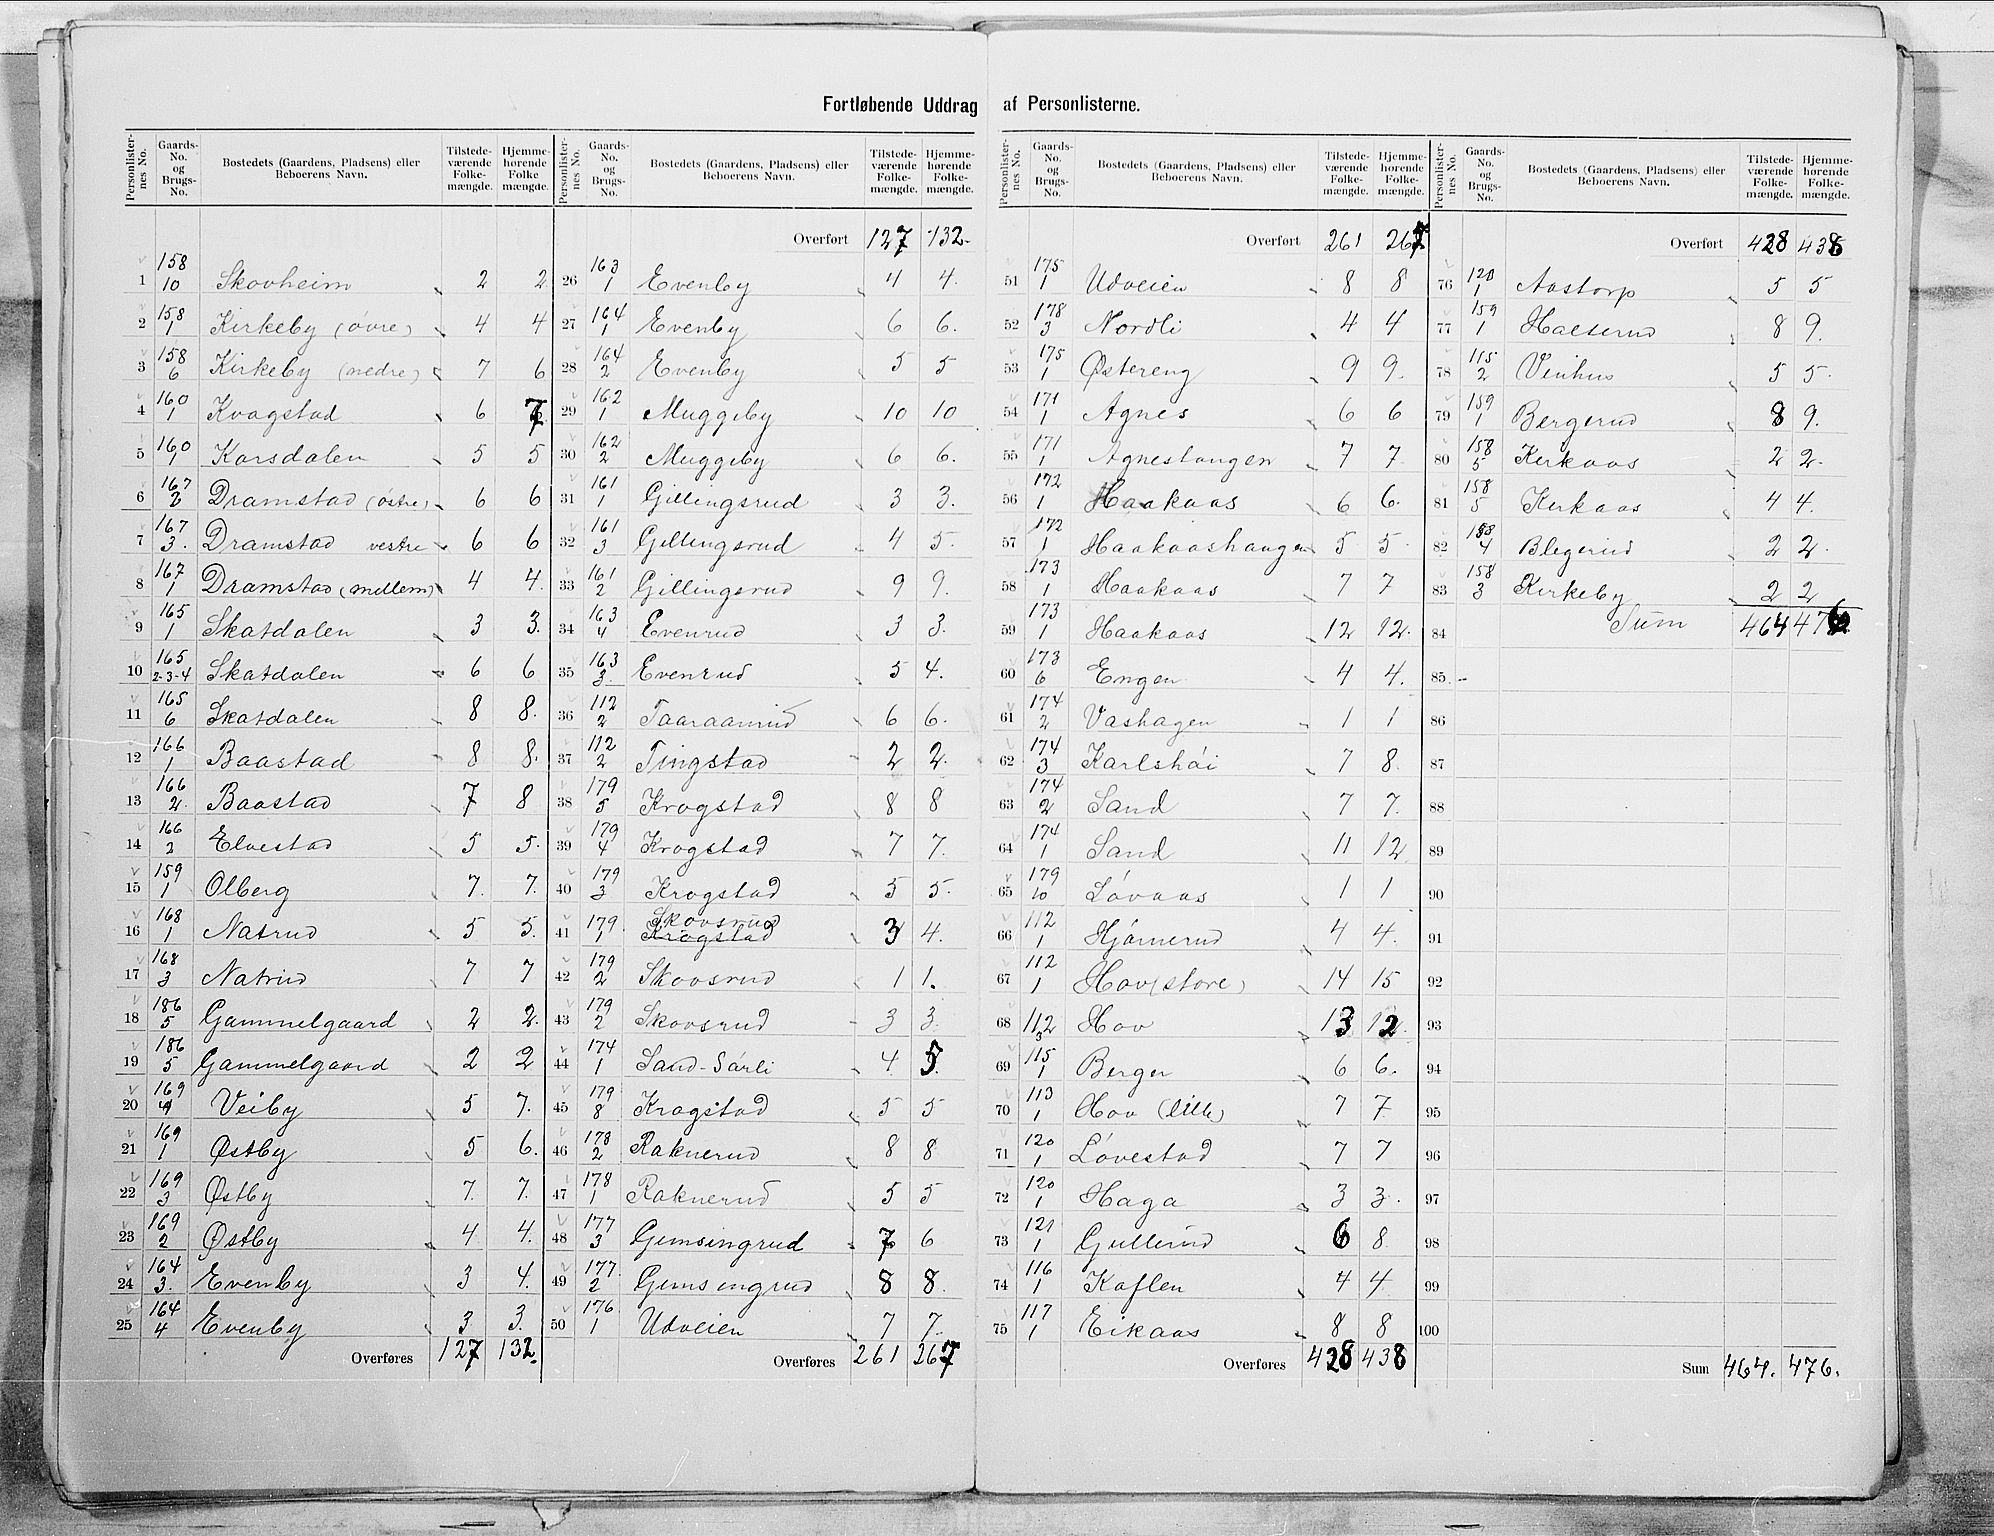 Fortløbende Uddrag af Personlisterne.
Personlister-nes No. Gaards-No. og Brugs-No. Bostedets (Gaardens, Pladsens) eller Beboerens Navn. Tilstede-værende Folke-mængde. Hjemme-hørende Folke mængde.
1 158/10 Skovheim 2 2
2 158/1 Kirkeby (øvre) 4 4
3 158/6 Kirkeby (nedre) 7 6
4 160/1 Kvagstad 6 7
5 160/1 Korsdalen 5 5
6 167/2 Dramstad (østre) 6 6
7 167/3. Dramstad vestre 6 6
8 167/1 Dramstad (mellem) 4 4.
9 165/1 Skatdalen 3 3.
10 165/2-3-4 Skatdalen 6 6
11 165/6 Skatdalen 8 8.
12 166/1 Baastad 8 8.
13 166/2. Baastad 7 8
14 166/2 Elvestad 5 5.
15 159/1 Olberg 7. 7.
16 168/1 Natrud 5 5.
17 168/3 Natrud 7 7
18 186/5 Gammelgaard 2 2.
19 186/5 Gammelgaard 2 2
20 169/4 Veiby 5 7.
21 169/1 Østby 5 6.
22 169/3 Østby 7. 7.
23 169/2 Østby 4 4.
24 164/3. Evenby 3 4.
25 164/4 Evenby 3 3.
Overføres 127 132.
Personlister-nes No. Gaards-No. og Brugs-No. Bostedets (Gaardens, Pladsens) eller Beboerens Navn. Tilstede-værende Folke-mængde. Hjemme-hørende Folke-mængde.
Overført 127 132.
26 163/1 Evenby 4 4.
27 164/1 Evenby 6 6.
28 164/2 Evenby 5 5
29 162/1 Muggeby 10 10
30 162/2 Muggeby 6 6.
31 161/1 Gillingsrud 3 3.
32 161/3 Gillingsrud 4 5.
33 161/2 Gillingsrud 9 9.
34 163/4 Evenrud 3 3.
35 163/3. Evenrud 5 4.
36 112/2 Taaraamud 6 6.
37 112/2 Tingstad 2 2.
38 179/5 Krogstad 8 8
39 179/4 Krogstad 7 7.
40 179/3 Krogstad 5 5.
41 179./1 Skovsrud Krogstad 3 4.
42 179/2 Skovsrud 1 1.
43 179/2 Skovsrud 3 3.
44 174/1 Sand-Sørli 4. 5.
45 179/8 Krogstad 5 5
46 178/2 Raknerud 8 8
47 178/1 Raknerud 5 5
48 177/3 Gimsingrud 7 6
49 177./2 Gimsingrud 8 8.
50 176./1 Udveien 7 7.
Overføres 261 267
Personlister-nes No. Gaards-No. og Brugs-No. Bostedets (Gaardens, Pladsens) eller Beboerens Navn. Tilstede-værende Folke-mængde. Hjemme-hørende Folke-mængde.
Overført 261 267
51 175/1 Udveien 8 8
52 178/3 Nordli 4 4
53 175/1 Østereng 9 9.
54 171/1 Agnes 6 6
55 171/1 Agnestangen 7 7
56 172/1 Haakaas 6 6.
57 172/1 Haakaashaugen 5 5.
58 173/1 Haakaas 7 7
59 173/1 Haakaas 12 12.
60 173/6 Engen 4 4.
61 174/2 Vashagen 1 1
62 174/3 Karlshøi 7 8.
63 174/2 Sand 7 7.
64 174/1 Sand 11 12
65 179/10 Løvaas 1 1
66 112/1 Hjørnerud 4 4.
67 112/1 Hov (store) 14 15
68 112/3 Hov 13 12.
69 115/1 Berger 6 6.
70 113/1 Hov (lille) 7 7
71 120/1 Løvestad 7 7
72 120/1 Haga 3 3.
73 121/1 Gullerud 6 8
74 116/1 Kaflen 4 4
75 117/1 Eikaas 8 8
Overføres 428 438
Personlister-nes No. Gaards-No. og Brugs-No. Bostedets (Gaardens, Pladsens) eller Beboerens Navn. Tilstede-værende Folke-mængde. Hjemme-hørende Folke-mængde.
Overført 428 438
76 120/1 Aastorp 5 5
77 159/1 Haeserud 8 9.
78 115/2 Vinhus 5 5.
79 159/1 Bergerud 8 9.
80 158/5 Kirkaas 2 2.
81 158/5 Kirkaas 4 4.
82 158/4 Blegerud 2 2.
83 158/3 Kirkeby 2 2
84 Sum 464 476.
85
86
87
88
89
90
91
92
93
94
95
96
97
98
99
100
Sum 464. 476.